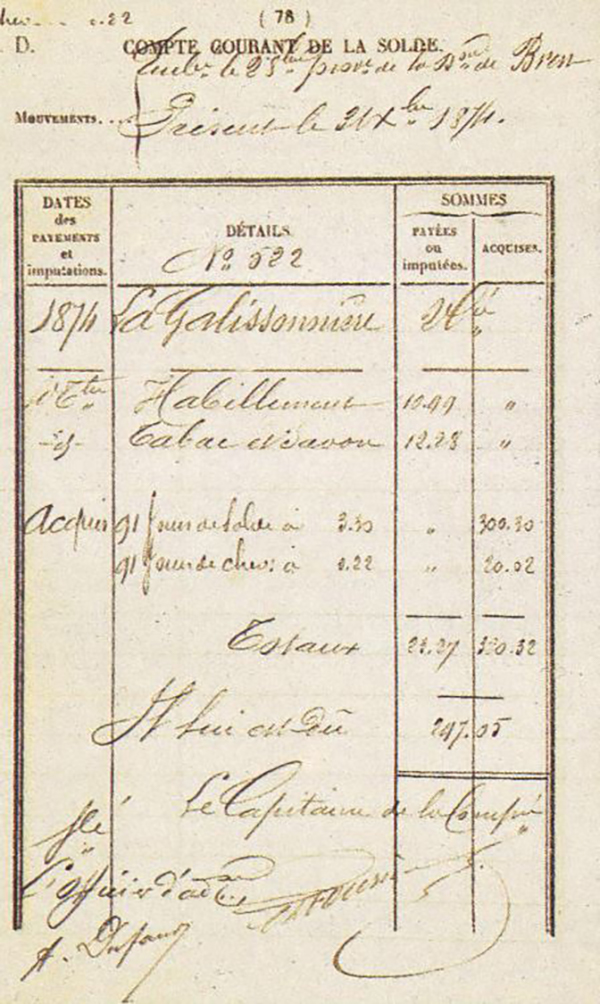 0.22 ( 78 )
D. COMPTE COURANT DE LA SOLDE.
le 25 de la de Brest
MOUVEMENTS.... Présent le 31 Xbre 1874.
DATES des PAYEMENTS et imputations.
DÉTAILS.
No 522
SOMMES
PAYÉES ou imputées.
ACQUISES.
1874 La Galissonnière
Habillement 10.99 "
-id- Tabac et savon 12.28 "
Acquis 91 Jours de solde à 3.30 " 300.30
91 Jours de chev: à 0.22 " 20.02
Totaux 23.27 320.32
Il lui est dû 297.05
Le Capitaine de la Compie
L'off
A. Dufaur